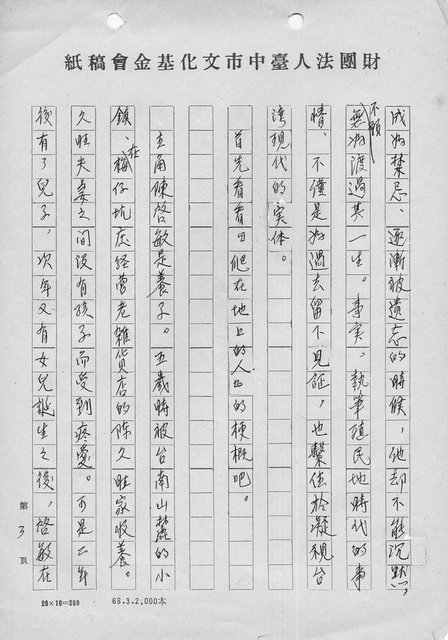 財團法人臺中市文化基金會稿紙
成為禁忌、逐漸被遺忘的時候，他却不能沉默，
不願
無為渡過其一生。事実，執筆殖民地時代的事
情、不僅是為過去留下見証，也繫住於凝視台
湾現代的実体。
首先看看『爬在地上的人』的梗概吧。
主角陳啓敏是養子。五歲時被台南山麓的小
鎮、在梅仔坑庄経営老雜貨店的陳久旺家收養。
久旺夫妻之間沒有孩子而受到疼愛。可是二年
後有了兒子，次年又有女兒誕生之後，啓敏在
第3頁
20×10=200
68.3.2,000本